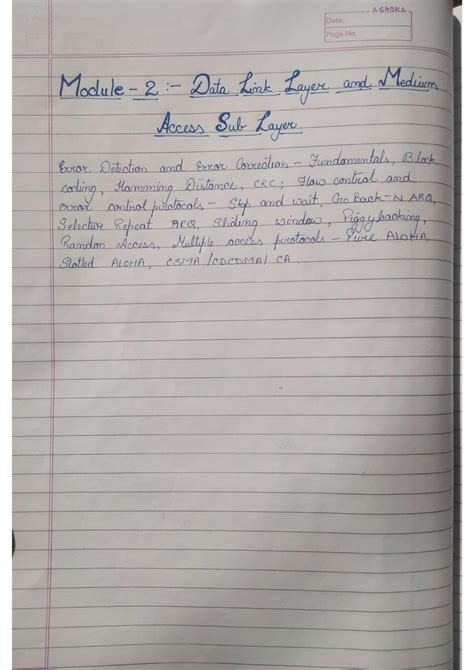 ASHOKA
Date:
Page No.
Module - 2 :- Data Link Layer and Medium
Access Sub Layer
Error Detection and Error Correction - Fundamentals, Block
coding, Hamming Distance, CRC; Flow control and
error control protocols - Stop and wait, Go Back-N ARQ,
Selective Repeat ARQ, Sliding window, Piggybacking,
Random Access, Multiple access protocols - Pure ALOHA,
Slotted ALOHA, CSMA/CDCDMA/CA.